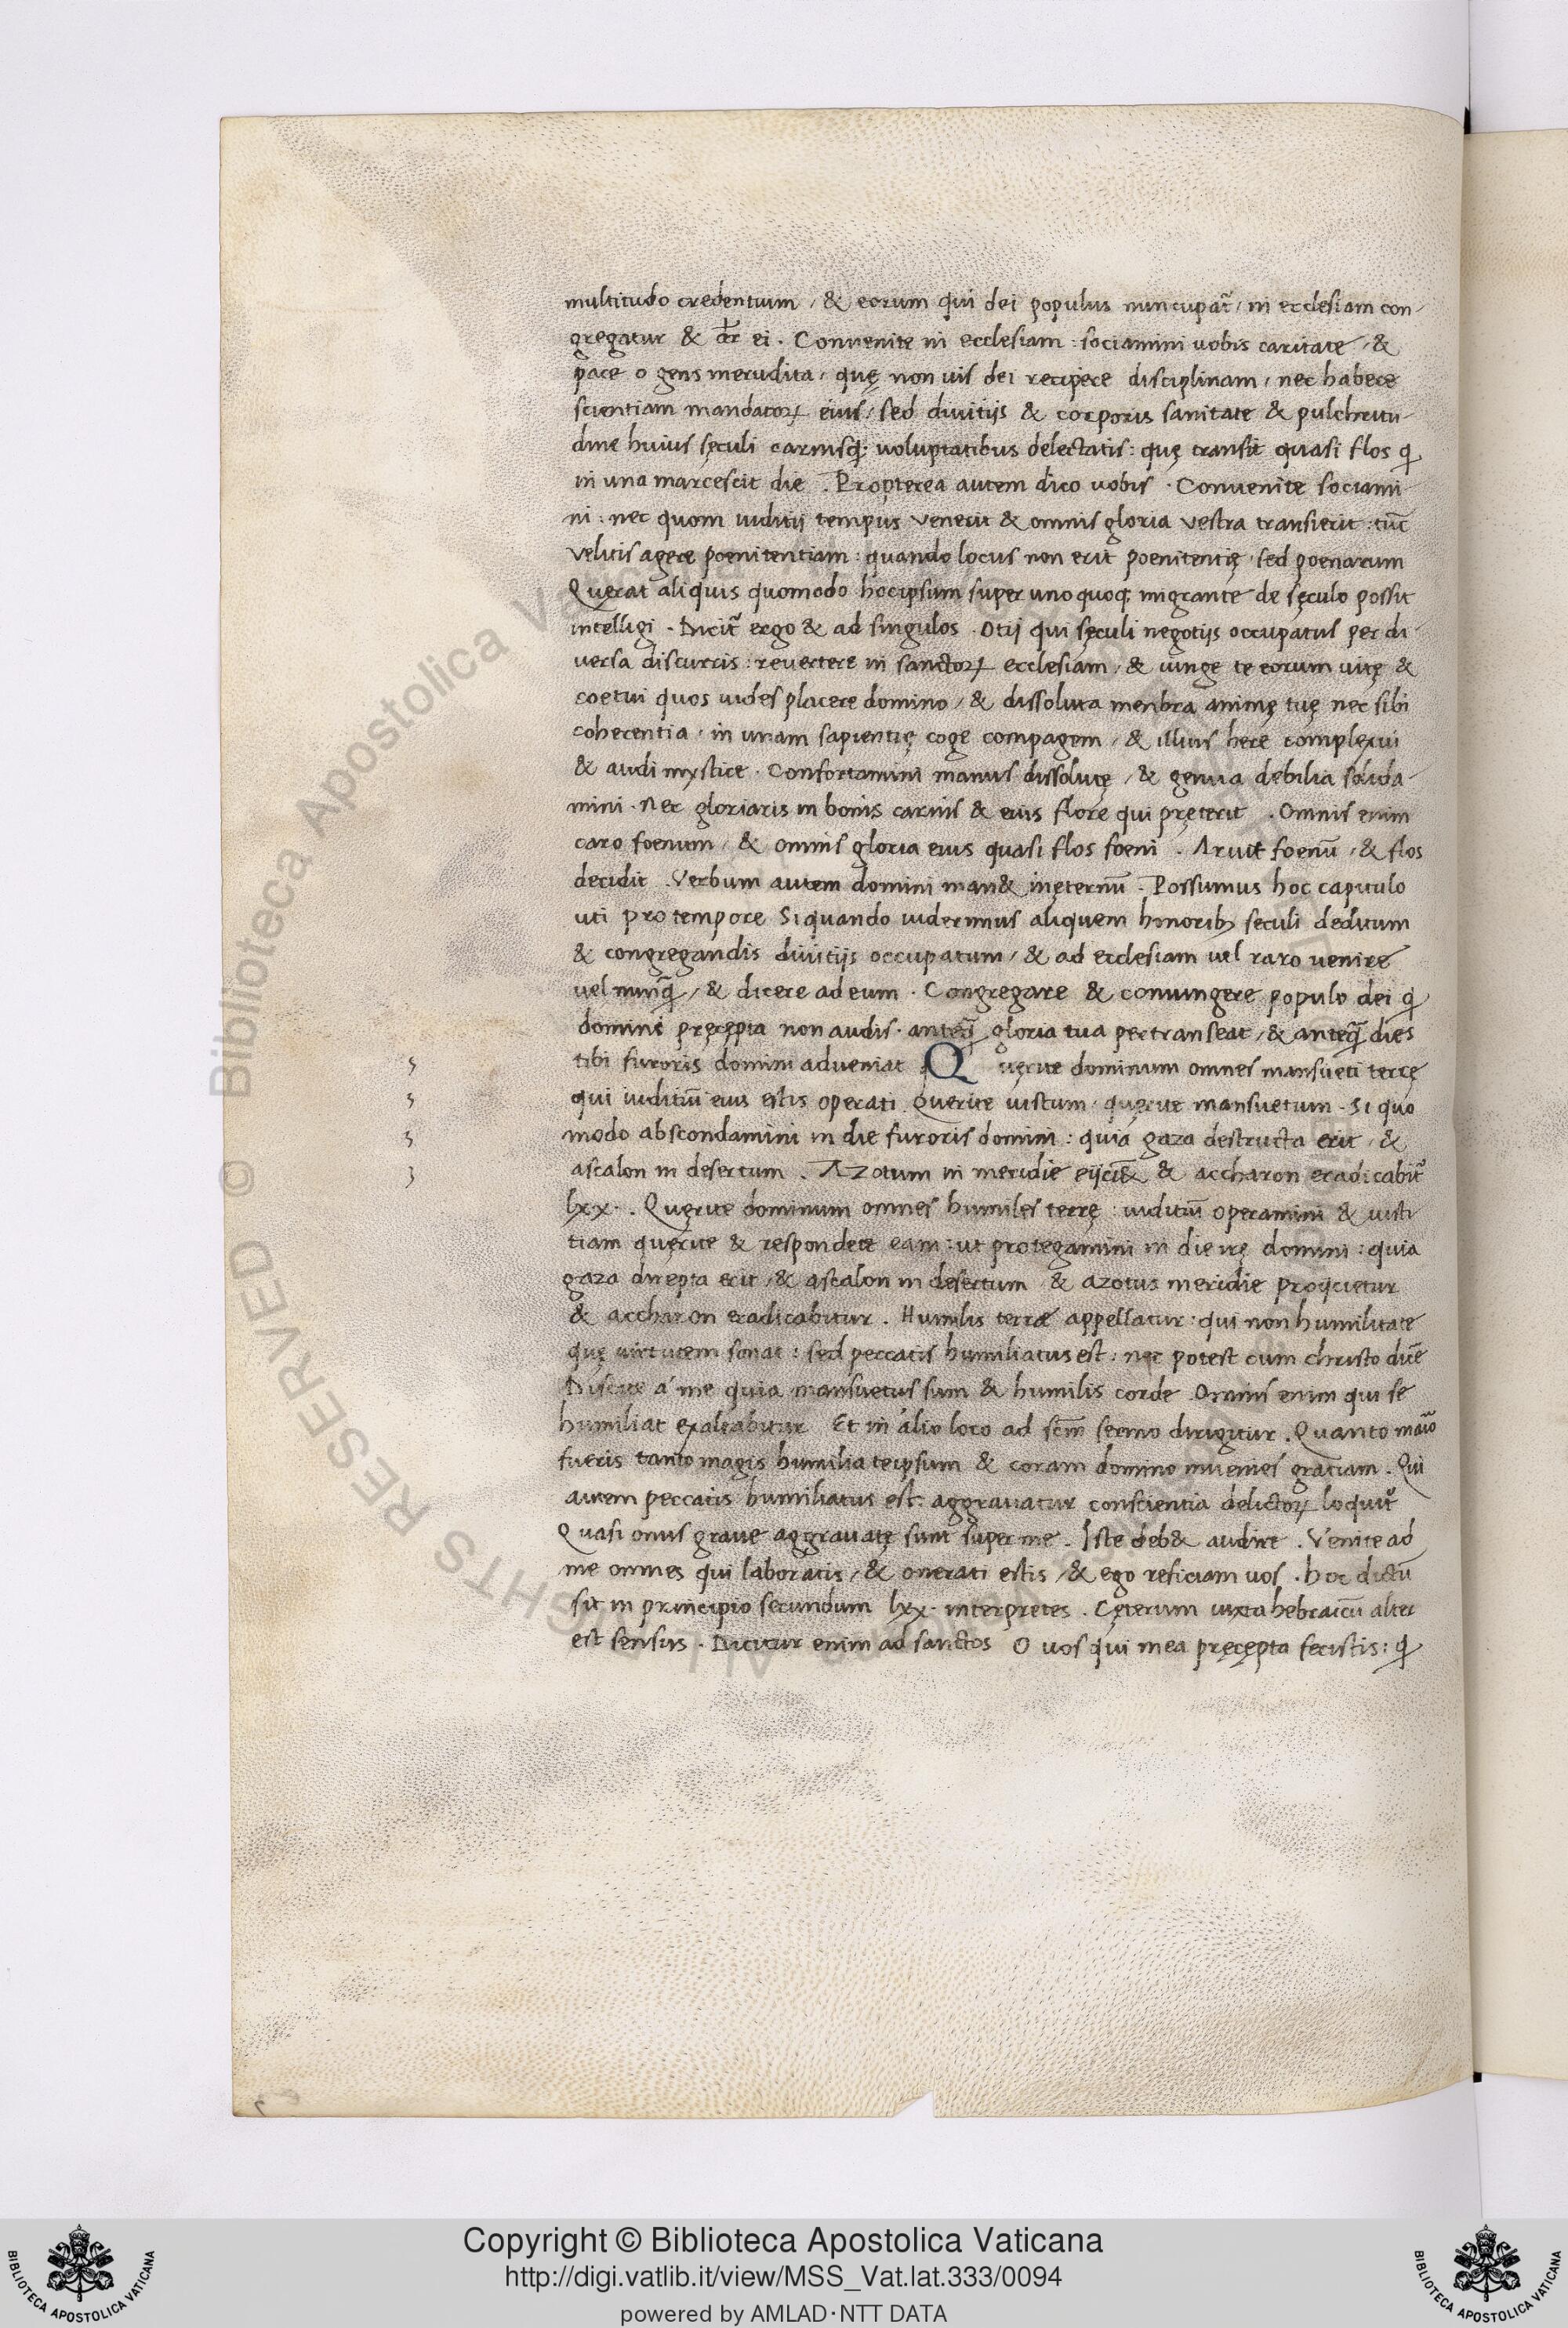 multitudo credentium / & eorum qui dei populus nuncupat̃ / in ecclesiam con-
gregatur & dr̃ ei . Conuenite in ecclesiam : sociamini uobis caritate / &
pace o gens inerudita / quę non uis dei recipere disciplinam / nec habere
scientiam mandatoꝝ eius / sed diuitijs & corporis sanitate & pulchritu-
dine huius sęculi carnisq; uoluptatibus delectatis : quę transit quasi flos q̃
in una marcescit die . Propterea autem dico uobis . Conuenite sociami
ni : nec quom iuditij tempus venerit & omnis gloria vestra transierit : tũc
velitis agere poenitentiam : quando locus non erit poenitentię sed poenarum
Quęrat aliquis quomodo hocipsum super uno quoq; migrante de sęculo possit
intelligi . Dicit̃ ergo & ad singulos . Otij qui sęculi negotijs occupatus per di
versa discurris : revertere in sanctoꝝ ecclesiam / & iunge te eorum uitę &
coetui quos uides placere domino / & dissoluta menbra animę tuę nec sibi
coherentia / in unam sapientię coge compagem / & illius here complexui
& audi mystice . Confortamini manus dissolutę / & genua debilia solida-
mini . Nec gloriaris in bonis carnis & eius flore qui pręterit . Omnis enim
caro foenum / & omnis gloria eius quasi flos foeni . Aruit foenũ / & flos
decidit . Verbum autem domini man& inęternũ . Possumus hoc capitulo
uti pro tempore Si quando uiderimus aliquem honoribꝫ seculi deditum
& congregandis diuitijs occupatum / & ad ecclesiam vel raro venire
vel nunq̃ / & dicere ad eum . Congregare & coniungere populo dei q̃
domini pręcępta non audis . anteq̃ gloria tua pertranseat / & anteq̃ dies
tibi furoris domini adveniat . Quęrite dominum omnes mansueti terrę
qui iuditiũ eius estis operati Quęrite iustum quęrite mansuetum . Si quo
modo abscondamini in die furoris domini : quia gaza destructa erit / &
ascalon in desertum . Azotum in meridie eijci& & accharon eradicabit̃
lxx . Quęrite dominum omnes humiles terrę : iuditiũ operamini & iusti
tiam quęrite & respondete eam : ut protegamini in die irę domini : quia
gaza direpta erit / & ascalon in desertum & azotus meridie proijcietur
& accharon eradicabitur . Humilis terræ appellatur : qui non humilitate
quę uirtutem sonat : sed peccatis humiliatus est : nec potest cum christo dicẽ
Discite á me quia mansuetus sum & humilis corde Omnis enim qui se
humiliat exaltabitur Et in alio loco ad scm̃ sermo dirigitur . Quanto maio
fueris tanto magis humilia teipsum & coram domino inuenies gratiam . Qui
autem peccatis humiliatus est : aggravatur conscientia delictoꝝ loquit̃
Quasi onus graue aggrauatę sunt super me . Iste deb& audire . Venite ad
me omnes qui laboratis / & onerati estis / & ego reficiam uos . hoc dictũ
sit in principio secundum lxx . interpretes . Cęterum iuxta hebraicũ alter
est sensus . Dicitur enim ad sanctos O uos qui mea pręcępta fecistis : q̃
Copyright © Biblioteca Apostolica Vaticana
http://digi.vatlib.it/view/MSS_Vat.lat.333/0094
powered by AMLAD·NTT DATA
BIBLIOTECA APOSTOLICA VATICANA
BIBLIOTECA APOSTOLICA VATICANA